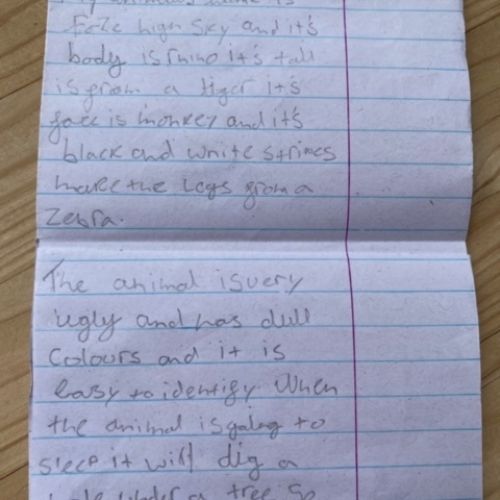 animals name is
Foze high sky and it's
body is rhino it's tall
is from a tiger it's
face is monkey and it's
black and white strines
make the legs from a
zebra.
The animal is very
ugly and has dull
colours and it is
easy to identify When
the animal is going to
sleep it will dig a
hole under a tree so